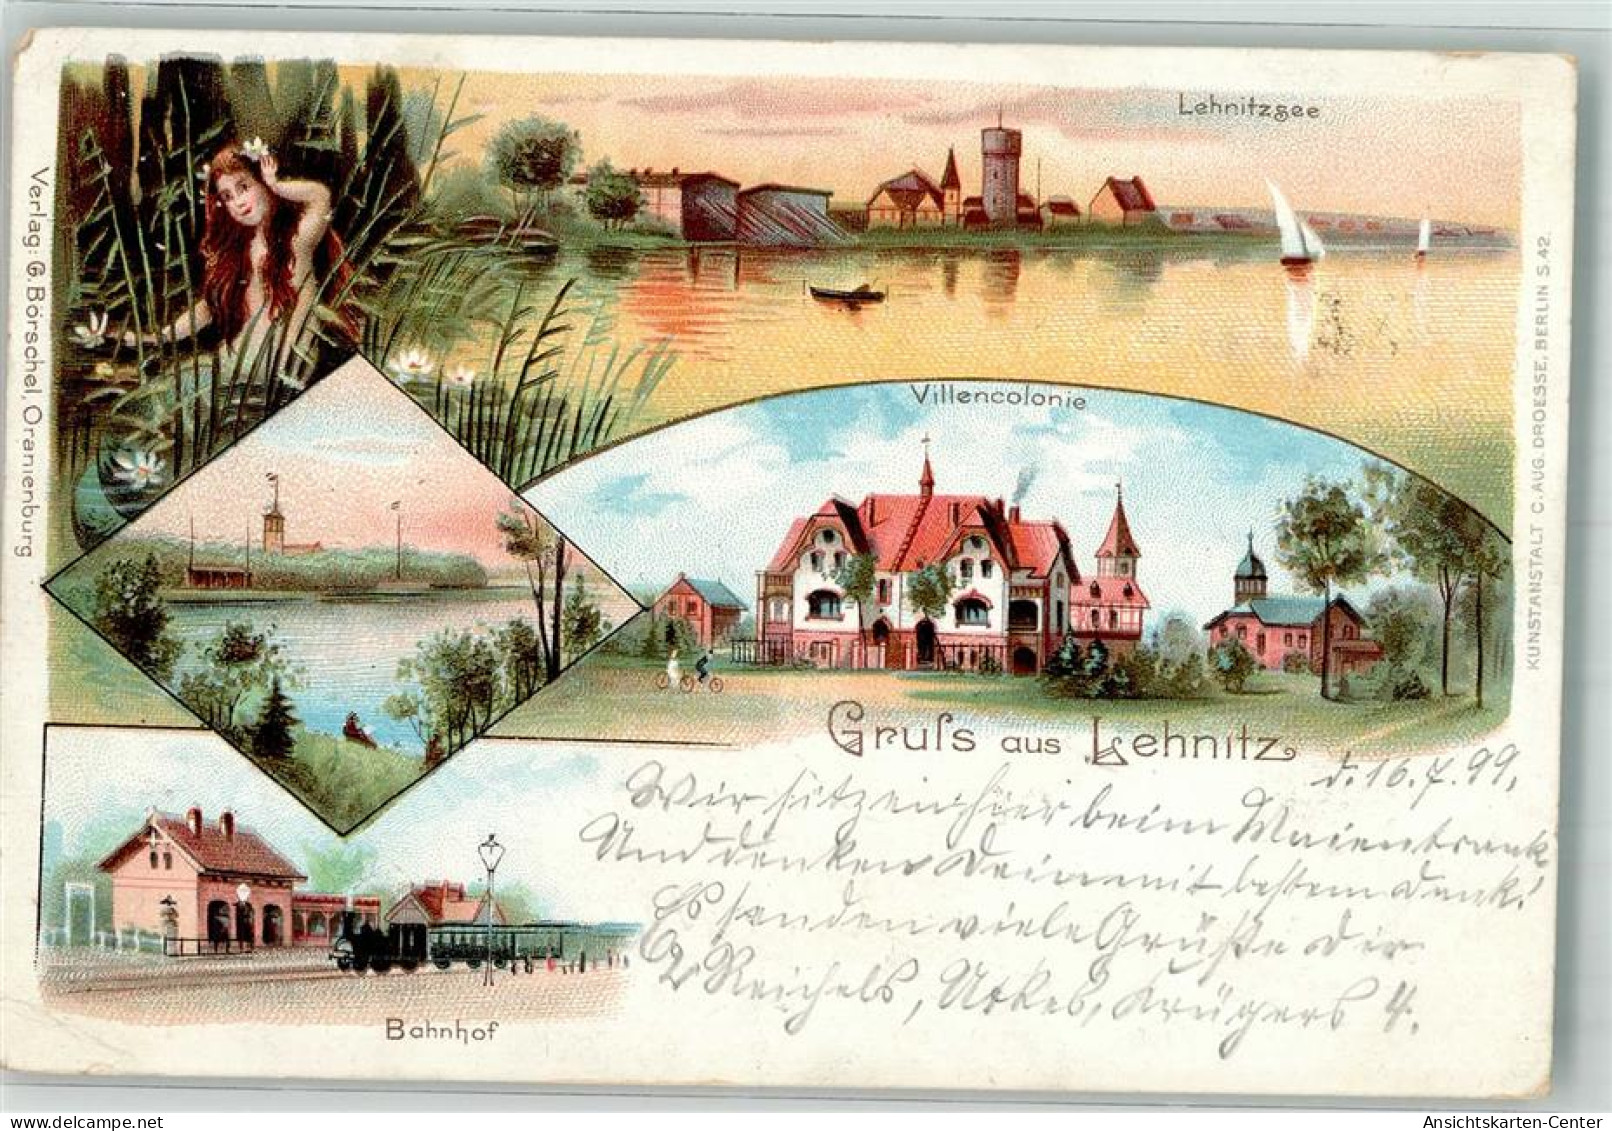 Lehnitzsee
Villencolonie
Verlag: G. Börschel, Oranienburg
KUNSTANSTALT C. AUG. DROESSE, BERLIN S. 42.
Gruſs aus Lehnitz
d. 16.7.99.
Wir sitzen hier beim Maientrank
Und denken Dein mit bestem Dank!
Es senden viele Grüße Dir
2 Reichels, Krügers 4.
Bahnhof
Ansichtskarten-Center